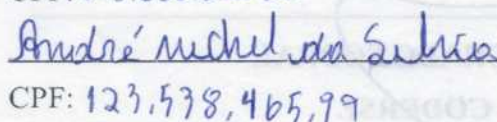 André Michel da Silva
CPF: 123,538,465,99